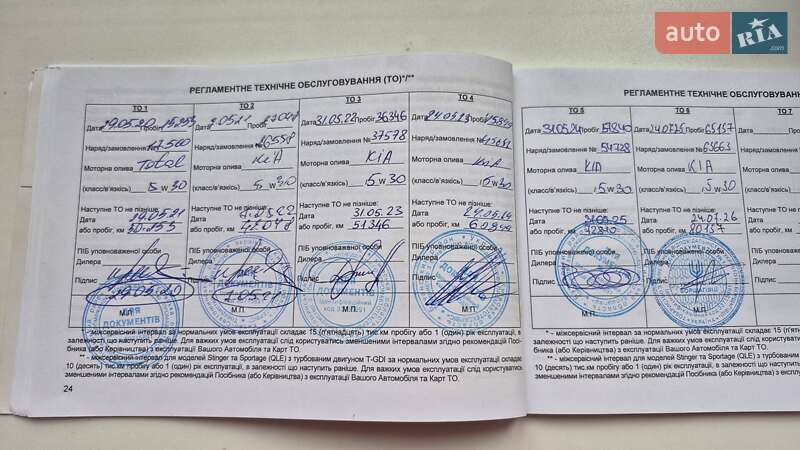 auto RIA .com
РЕГЛАМЕНТНЕ ТЕХНІЧНЕ ОБСЛУГОВУВАННЯ (ТО)*/**
ТО 1
Дата 29.05.20 Пробіг
Наряд/замовлення №
Моторна олива Total
(класс/в'язкість) 5 W 30
Наступне ТО не пізніше:
Дата
або пробіг, км
ПІБ уповноваженої особи
Дилера
Підпис
29.05.20
М.П.
ДЛЯ
ДОКУМЕНТІВ
ТО 2
Дата Пробіг
Наряд/замовлення №
Моторна олива KIA
(класс/в'язкість) 5 W 30
Наступне ТО не пізніше:
Дата
або пробіг, км 42048
ПІБ уповноваженої особи
Дилера
Підпис
М.П.
ТО 3
Дата 31.05.22 Пробіг 36346
Наряд/замовлення № 37578
Моторна олива KIA
(класс/в'язкість) 5 W 30
Наступне ТО не пізніше:
Дата 31.05.23
або пробіг, км 51346
ПІБ уповноваженої особи
Дилера
Підпис
М.П.
ТО 4
Дата 24.05.23 Пробіг
Наряд/замовлення №
Моторна олива KIA
(класс/в'язкість) 5 W 30
Наступне ТО не пізніше:
Дата
або пробіг, км
ПІБ уповноваженої особи
Дилера
Підпис
М.П.
* - міжсервісний інтервал за нормальних умов експлуатації складає 15 (п'ятнадцять) тис.км пробігу або 1 (один) рік експлуатації, в
залежності що наступить раніше. Для важких умов експлуатації слід користуватись зменшеними інтервалами згідно рекомендацій Посібника
(або Керівництва) з експлуатації Вашого Автомобіля та Карт ТО.
** - міжсервісний інтервал для моделей Stinger та Sportage (QLE) з турбованим двигуном T-GDI за нормальних умов експлуатації складає
10 (десять) тис.км пробігу або 1 (один) рік експлуатації, в залежності що наступить раніше. Для важких умов експлуатації слід користуватись
зменшеними інтервалами згідно рекомендацій Посібника (або Керівництва) з експлуатації Вашого Автомобіля та Карт ТО.
24
РЕГЛАМЕНТНЕ ТЕХНІЧНЕ ОБСЛУГОВУВАНН
ТО 5
Дата 31.05.24 Пробіг 57840
Наряд/замовлення № 54728
Моторна олива KIA
(класс/в'язкість) 5 W 30
Наступне ТО не пізніше:
Дата 31.05.25
або пробіг, км 72840
ПІБ уповноваженої особи
Дилера
Підпис
М.П.
ТО 6
Дата 24.07.25 Пробіг 65157
Наряд/замовлення № 63663
Моторна олива KIA
(класс/в'язкість) 5 W 30
Наступне ТО не пізніше:
Дата 24.07.26
або пробіг, км 80157
ПІБ уповноваженої особи
Дилера
Підпис
М.П.
ТО 7
Дата
Наряд/замовлення
Моторна олива
(класс/в'язкість)
Наступне ТО не
Дата
або пробіг, км
ПІБ уповноваженої
Дилера
Підпис
М.П.
* - міжсервісний інтервал за нормальних умов експлуатації складає 15 (п'ятн
залежності що наступить раніше. Для важких умов експлуатації слід користуватись
(або Керівництва) з експлуатації Вашого Автомобіля та Карт ТО.
** - міжсервісний інтервал для моделей Stinger та Sportage (QLE) з турбован
10 (десять) тис.км пробігу або 1 (один) рік експлуатації, в залежності що наступит
зменшеними інтервалами згідно рекомендацій Посібника (або Керівництва) з експл